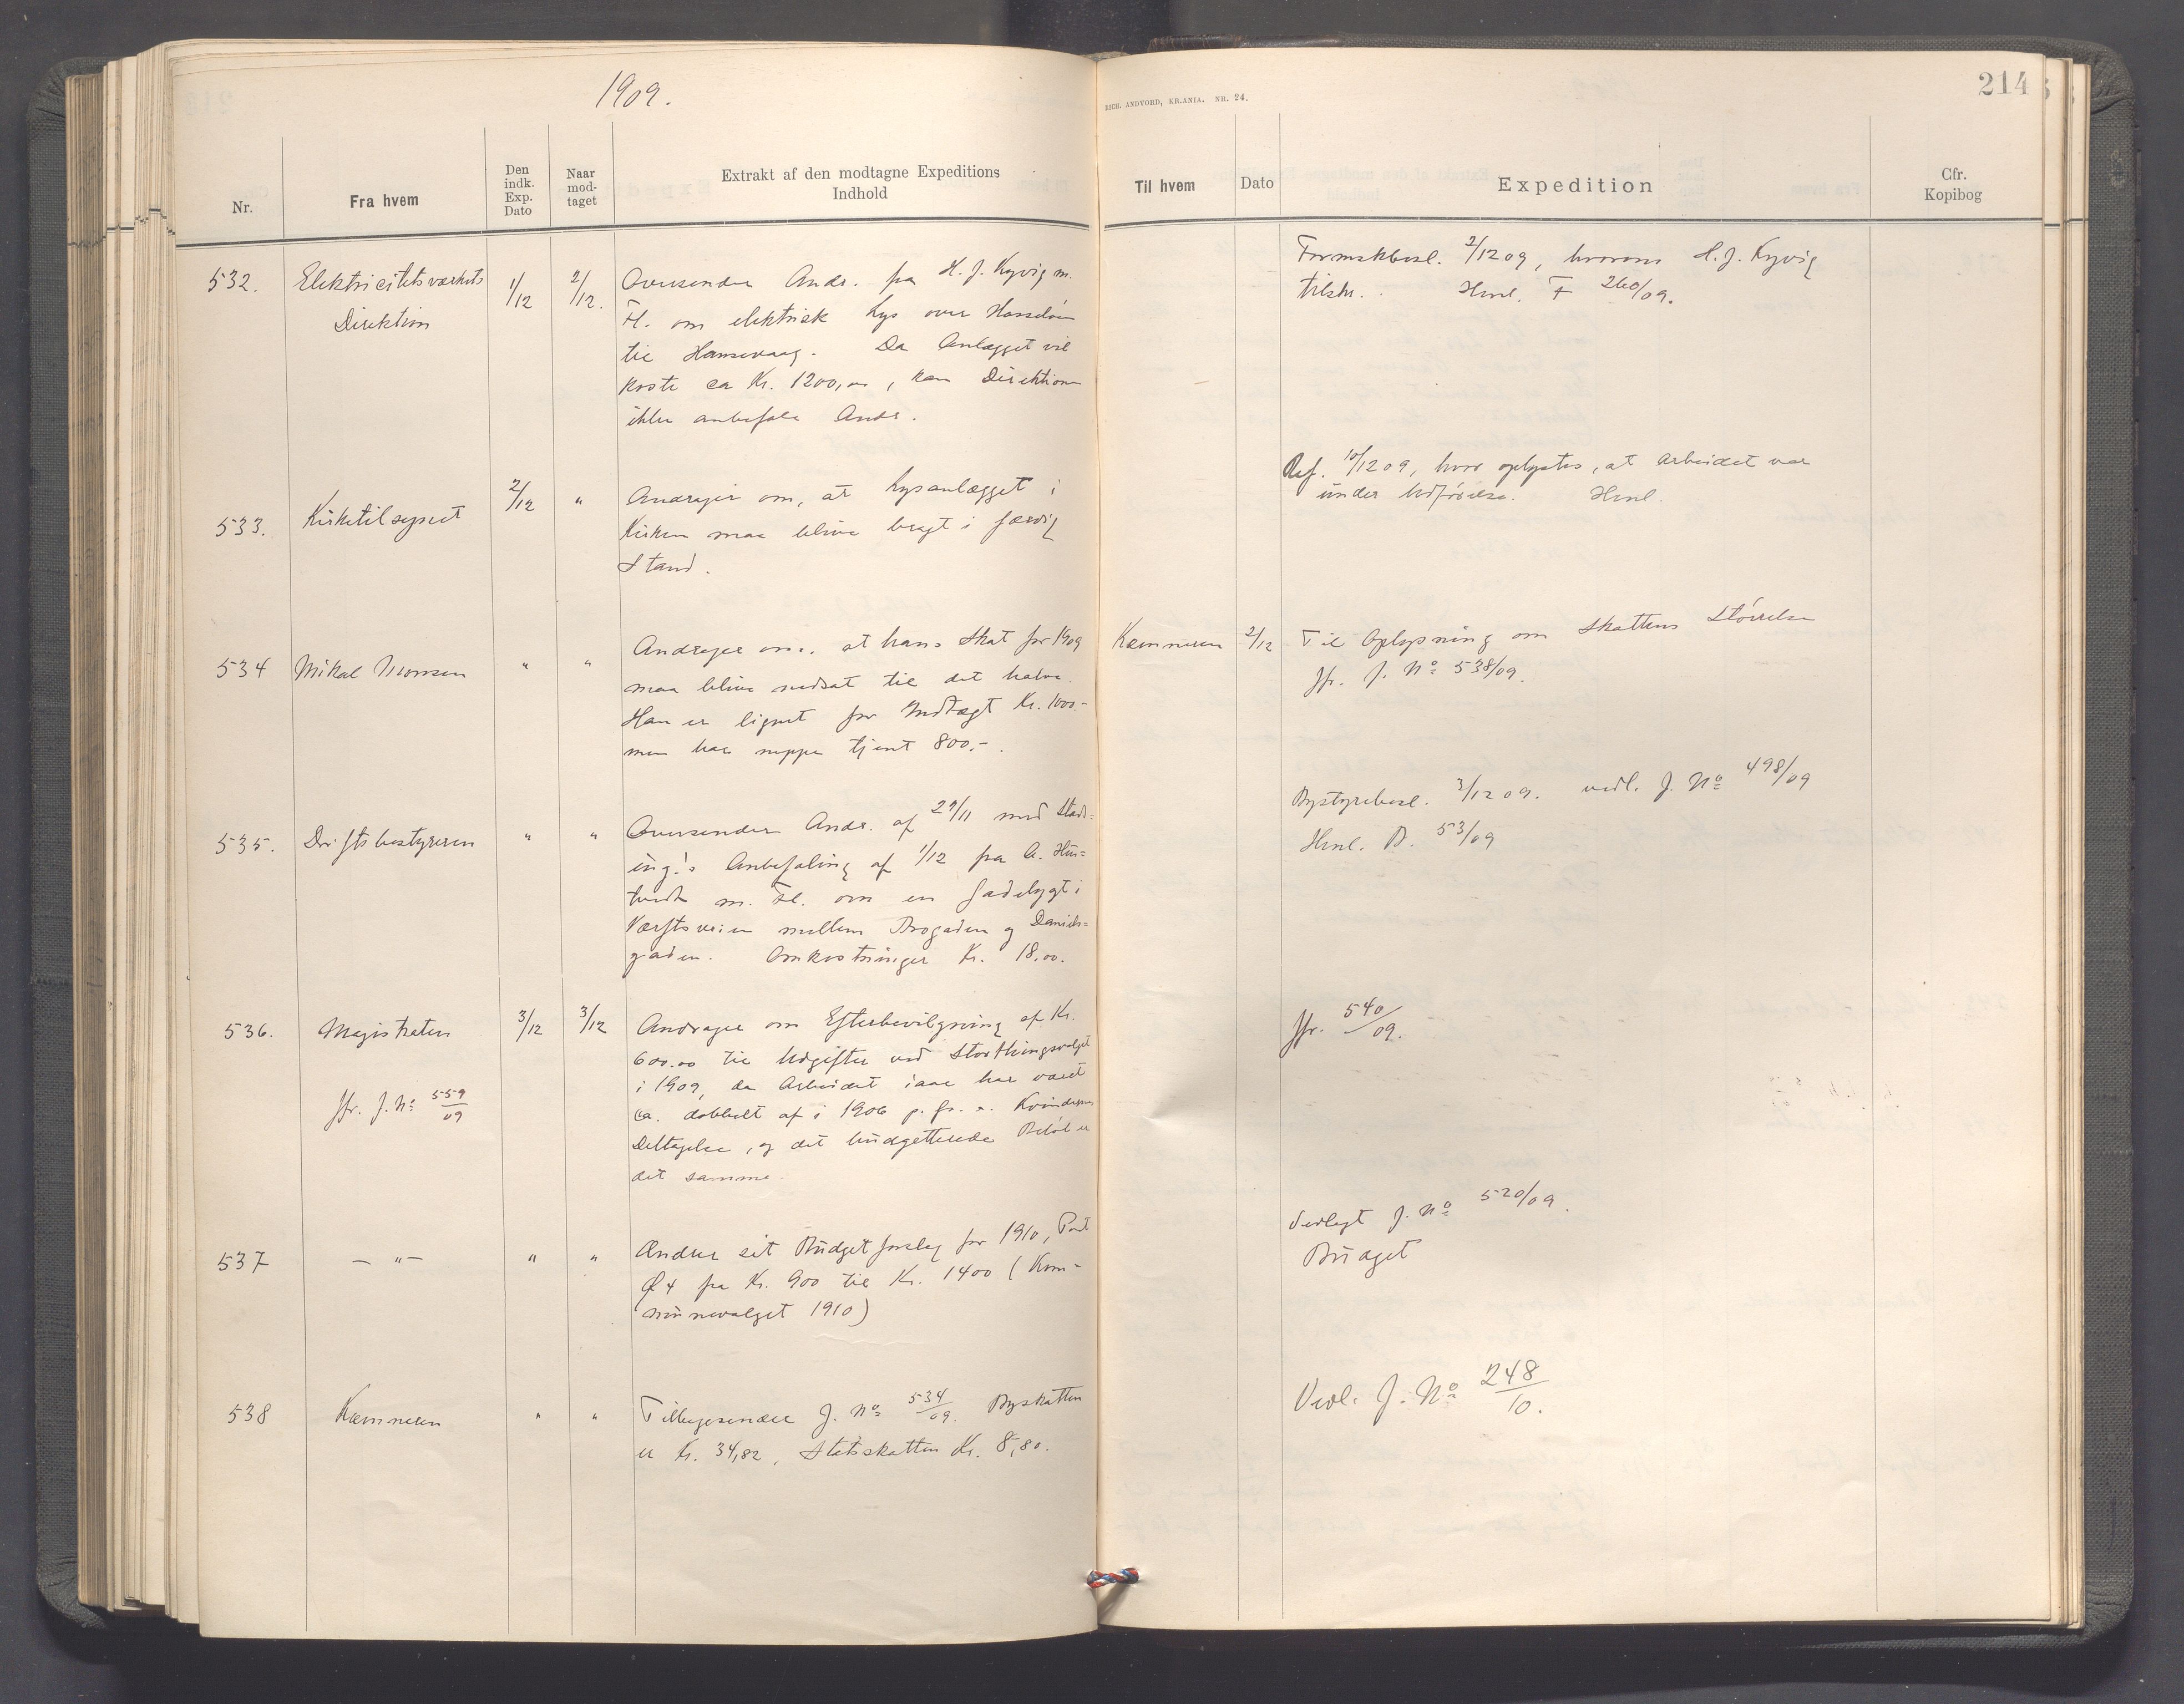 1909.
Nr.
Fra hvem
Den indk. Exp. Dato
Naar modtaget
Extrakt af den modtagne Expeditions Indhold
532. Elektricitetsværkets Direktion 1/12 2/12.
Oversender Andr. fra H. J. Kyvig m.
Fl. om elektrisk Lys over Hasseløen
til Hansevaag. Da Anlægget vil
koste ca Kr. 1200,00, kan Direktionen
ikke anbefale Andr.
533. Kirketilsynet 2/12 "
Andrager om, at Lysanlægget i
Kirken maa blive bragt i færdig
Stand.
534 Mikal " "
Andrager om, at hans Skat for 1909
maa blive nedsat til det halve.
Han er lignet for Indtægt Kr. 1000.-
men har neppe tjent 800.-.
535. Driftsbestyreren " "
Oversender Andr. af 29/11 med Stads=
ing's Anbefaling af 1/12 fra A. Hus=
tvedt m. Fl. om en Gadelygt i
Værftsveien mellem Brogaden og Daniels=
gaden. Omkostninger Kr. 18,00.
536. Magistraten 3/12 3/12
Jfr. J. No 559/09
Andrager om Efterbevilgning af Kr.
600.00 til Udgifter ved Storthingsvalget
i 1909, da Arbeidet iaar har været
ca. dobbelt af i 1906 p. gr. a. Kvindernes
Deltagelse, og det budgetterede Beløb er
det samme.
537 — " — " "
Andrer sit Budgetforslag for 1910, Post
4 fra Kr. 900 til Kr. 1400 (Kom-
munevalget 1910)
538 Kæmneren " "
Tilbagesender J. No 534/09. Byskatten
er Kr. 34,82, Statsskatten Kr. 8,80.
RICH. ANDVORD, KR.ANIA. NR. 24.
214
Til hvem
Dato
Expedition
Cfr. Kopibog
Formskbesl. 2/12 09, hvorom H. J. Kyvig
tilskr. Henl. F 260/09.
Ref. 10/12 09, hvor oplystes, at Arbeidet var
under Udførelse. Henl.
Kæmneren 2/12 Til Oplysning om Skattens Størrelse
Jfr. J. No 538/09.
Bystyrebesl. 3/12 09. vedl. J. No 498/09
Henl. B. 53/09
Jfr. 540/09.
Vedlagt J. No 520/09.
Budget
Vedl. J. No 248/10.